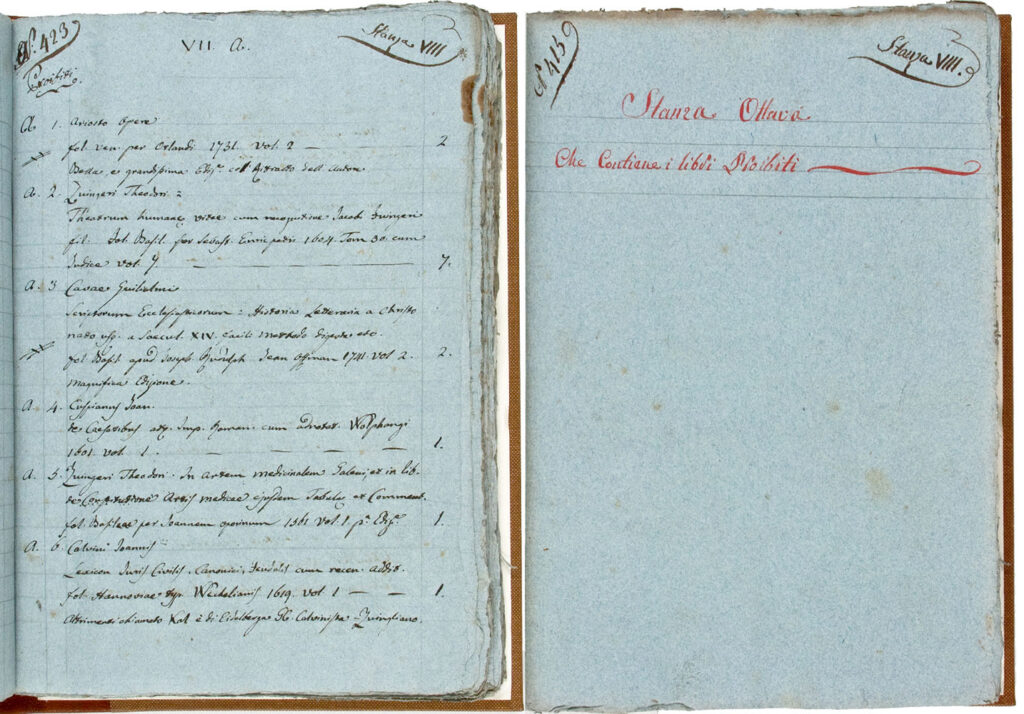 N. 423
VII. A.
Stanza VIII
Proibiti.
A 1. Ariosto Opere
fol. ven. per Orlandi 1731. vol. 2 — 2
Bella, e grandissima Ediz.e col Ritratto dell Autore
A. 2. Zuingeri Theodori:
Theatrum humanae vitae cum recognitione Jacobi Zuingeri
fil. fol. Basil. per Sebast. Enric petri 1604. Tom 30. cum
Indice vol. 7. — 7.
A. 3 Cavae Guilielmi
Scriptorum Ecclesiasticorum: Historia Letteraria a Christo
nato usq. a Saecul. XIV. facili methodo digesta etc.
fol. Basil. apud Joseph Rudolph Jean 1741. vol 2. 2.
magnifica Edizione.
A. 4. Cuspianus Joan.
de Caesaribus atq. Imp. Roman. cum Wolphangi
1601. vol. 1 — 1.
A. 5. Zuingeri Theodori. In Artem medicinalem Galeni, et in lib.
de Constitutione Artis medicae ejusdem Tabulae et Comment.
fol. Basileae per Joannem oporinum 1561. vol. 1 p.a Ediz.e 1.
A. 6. Calvini Joannis
Lexicon Juris Civilis, Canonici, feudalis cum recen. addit.
fol. Hannoviae typ. Wechelianis 1619. vol 1 — — 1.
Altrimenti chiamato Kal è di Eidelberga Calvinista Zuingliano.
N. 413
Stanza VIII.
Stanza Ottava
Che Contiene i libri Proibiti